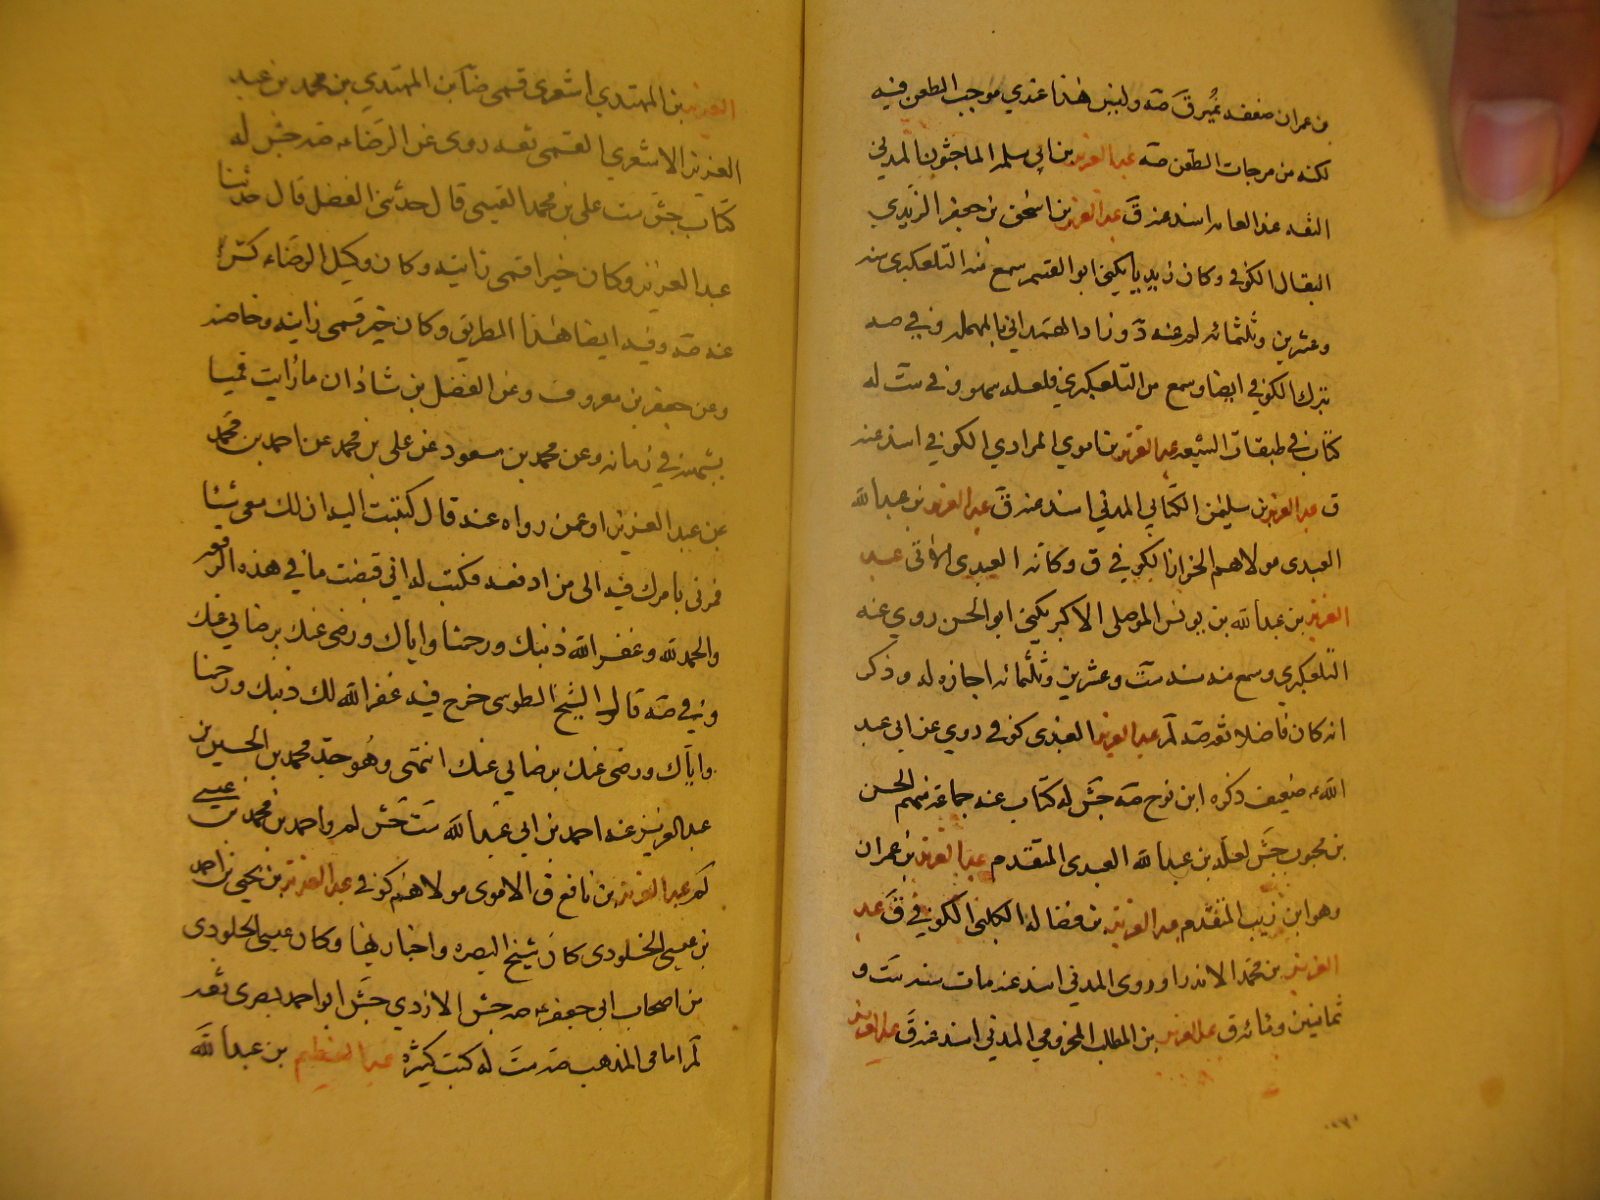 بن عمران ضعفه نمير ق صه وليس هذا عندي موجب الطعن فيه
لكنه من مرجحات الطعن صه عبد العزيز بن ابي سلمه الماجشون المدني
الثقه عند العامه اسند عنه ق عبد العزيز بن اسحق بن جعفر الزيدي
البقال الكوفي وكان زيديا يكنى ابو القسم سمع منه التلعكبري سنه
وعشرين وثلثمائه لم عنه د وزاد الهمداني بالمهمله وفي صه
نترك الكوفي ايضا وسمع من التلعكبري فلعله سهو وفي ست له
كتاب في طبقات الشيعه عبد العزيز بن اموي المرادي الكوفي اسند عنه
ق عبد العزيز بن سليمن الكناني المدني اسند عنه ق عبد العزيز بن عبد الله
العبدي مولاهم الخزاز الكوفي ق وكانه العبدي الاتي عبد
العزيز بن عبد الله بن يونس الموصلي الاكبر يكنى ابو الحسن روى عنه
التلعكبري وسمع منه سنه ست وعشرين وثلثمائه اجازه له وذكر
انه كان فاضلا ثقه صه لم عبد العزيز العبدي كوفي روى عن ابي عبد
الله ع ضعيف ذكره ابن نوح صه جش له كتاب عنه جماعه منهم الحسن
بن محبوب جش لعله بن عبد الله العبدي المتقدم عبد العزيز بن عمران
وهو ابن زينب المتقدم عبد العزيز بن فضاله الكلبي الكوفي ق عبد
العزيز بن محمد الاندراوردى المدني اسند عنه مات سنه ست و
ثمانين ومائه ق عبد العزيز بن المطلب المخزومي المدني اسند عنه ق عبد العزيز
العزيز بن المهتدي اشعرى قمى ضا كبن المهتدي بن محمد بن عبد
العزيز الاشعري القمى ثقه روى عن الرضا ع صه جش له
كتاب جش ست على بن محمد القتيبى قال حدثنى الفضل قال حدثنا
عبد العزيز وكان خير قمى رايته وكان وكيل الرضا ع كش
عنه صه وفيه ايضا هذا الطريق وكان خير قمى رايته وخاصه
وعن جعفر بن معروف وعن الفضل بن شاذان ما رايت قميا
يشبهه في زمانه وعن محمد بن مسعود عن على بن محمد عن احمد بن محمد
عن عبد العزيز او عمن رواه عنه قال كتبت اليه ان لك معى شيئا
فمرنى بامرك فيه الى من ادفعه فكتب له انى قبضت ما في هذه الرقعه
والحمد لله وغفر الله ذنبك ورحمنا واياك ورضى عنك برضائي عنك
وفي صه قال الشيخ الطوسي خرج فيه غفر الله لك ذنبك ورحمنا
واياك ورضى عنك برضائي عنك انتهى وهو جد محمد بن الحسين بن
عبد العزيز عنه احمد بن ابي عبد الله ست جش لم واحمد بن محمد بن عيسى
لم عبد العزيز بن نافع ق الاموى مولاهم كوفي عبد العزيز بن يحيى بن احمد
بن عيسى الجلودى كان شيخ البصره واخباريها وكان عيسى الجلودى
من اصحاب ابى جعفر ع صه جش الازدي جش ابو احمد بصرى ثقه
لم امامى المذهب صه ست له كتب كثيره عبد العظيم بن عبد الله